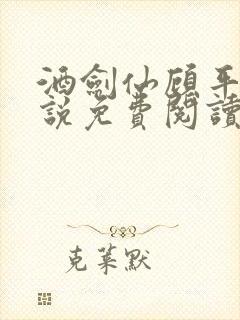 酒劍仙顧平
說免費閱讀
克萊默